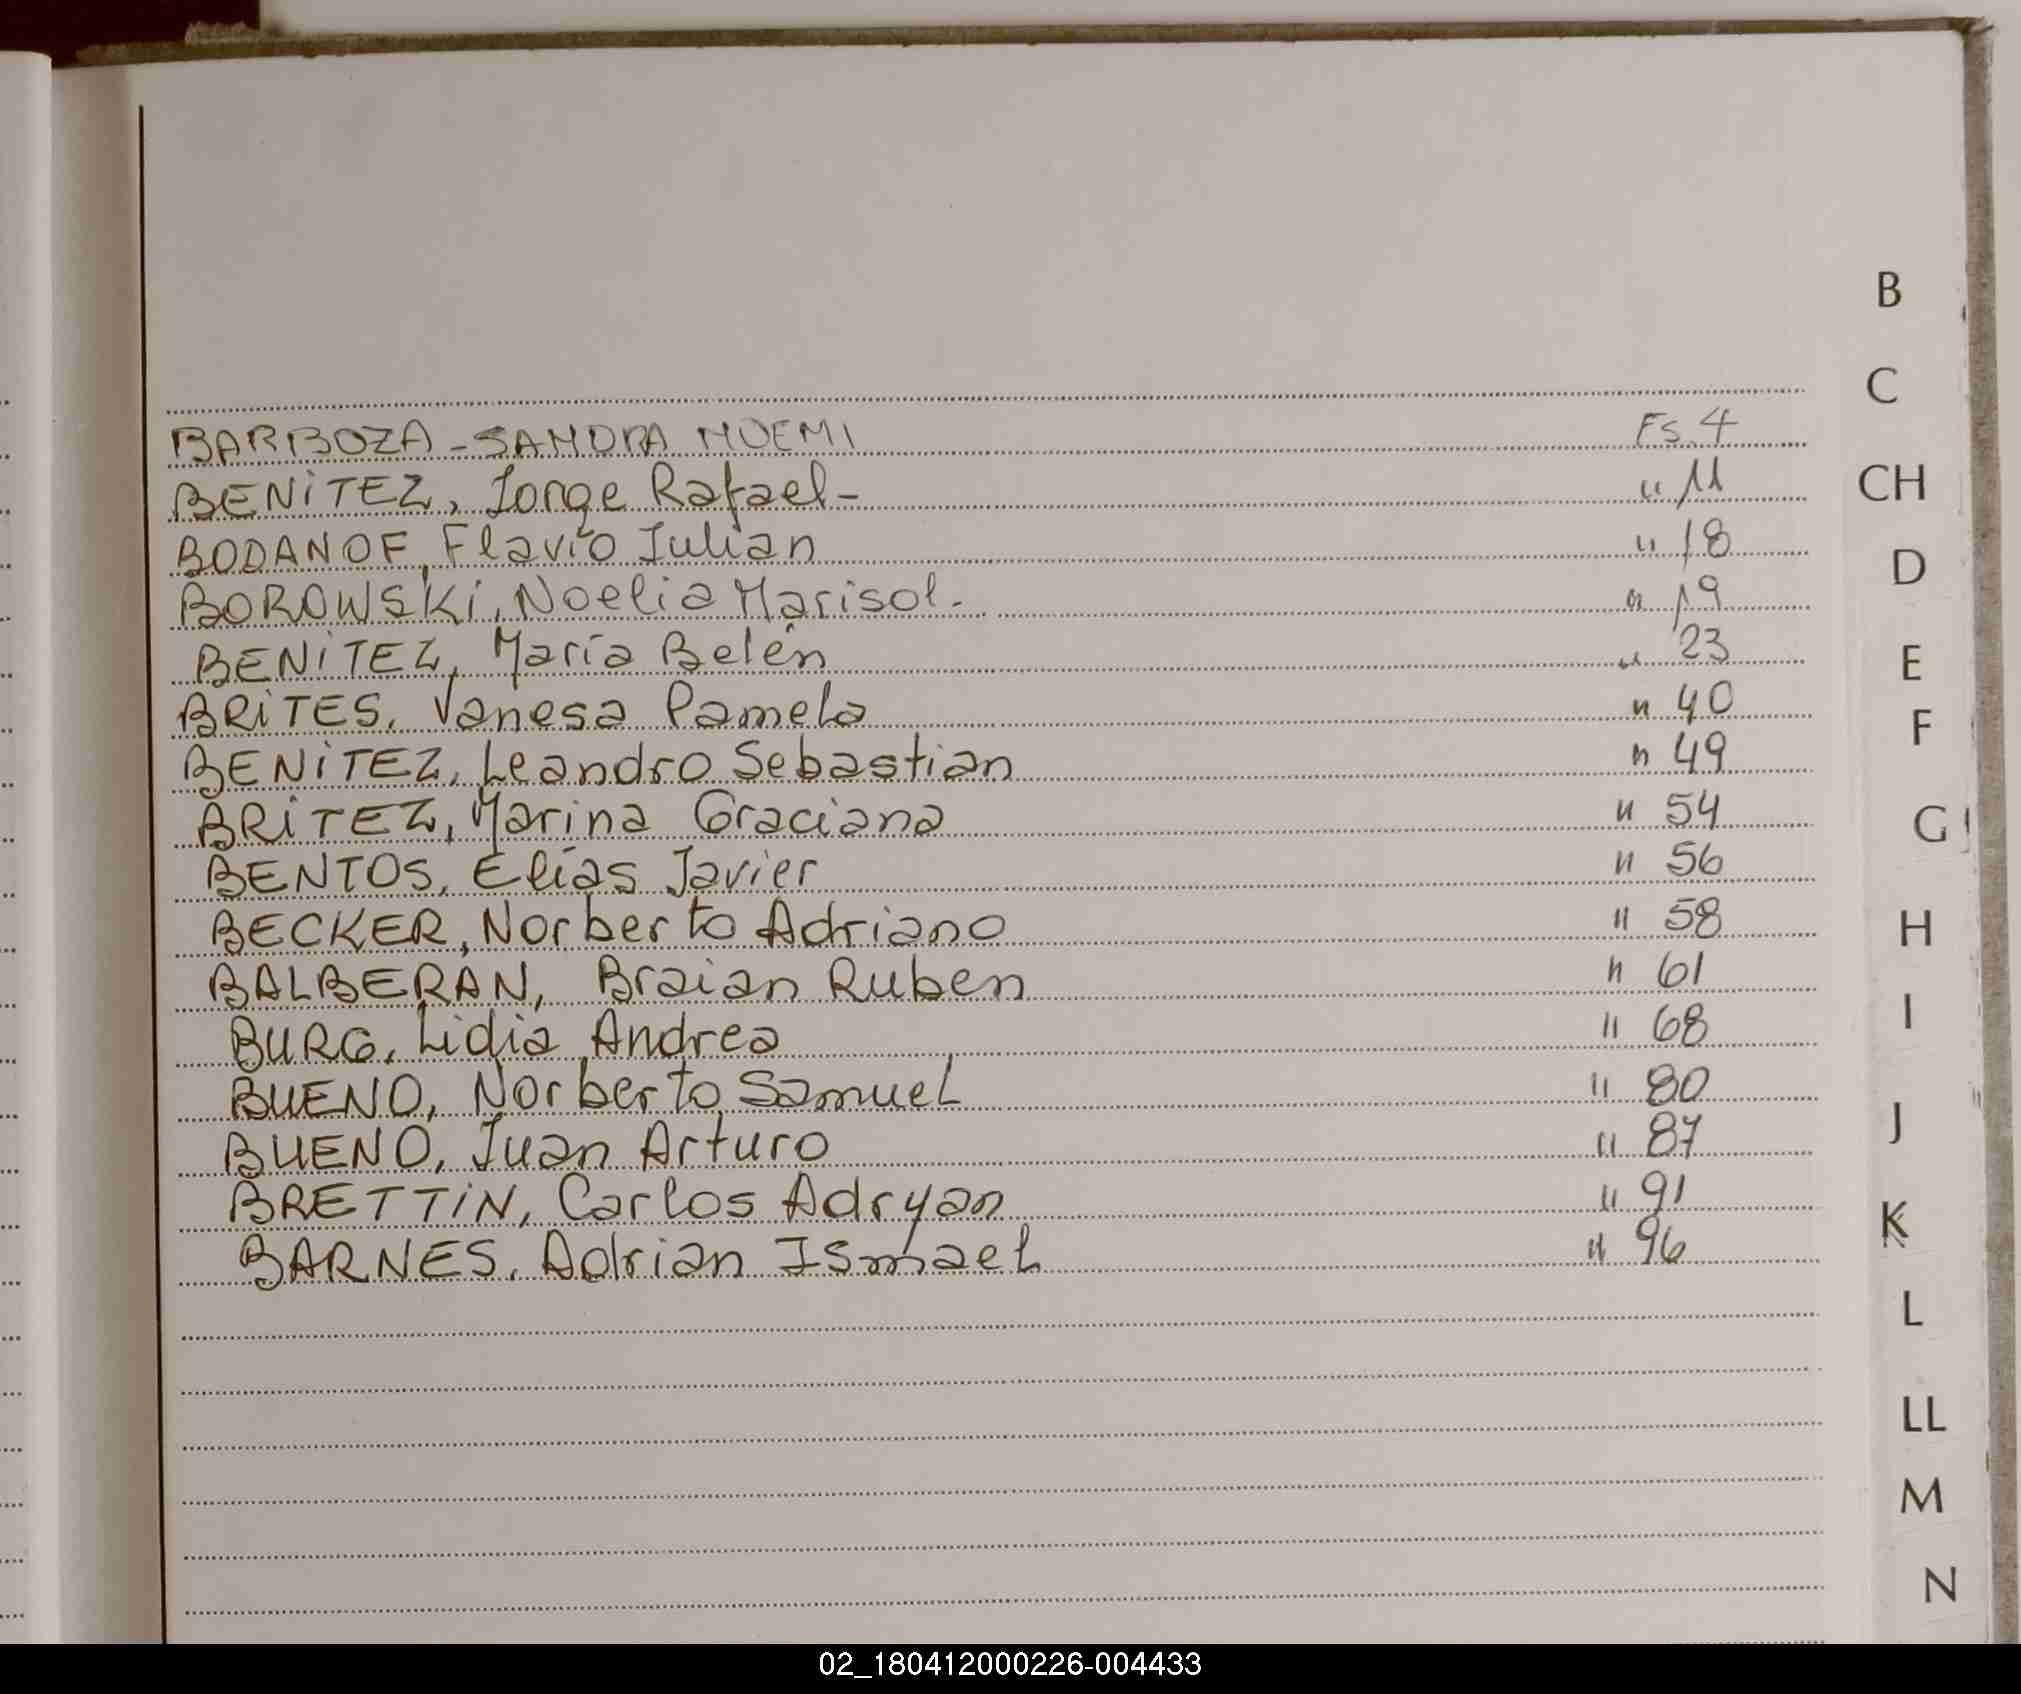 BARBOZA - SANDRA NOEMI Fs. 4
BENITEZ, Jorge Rafael - " 11
BODANOF, Flavio Julian " 18
BOROWSKI, Noelia Marisol. " 19
BENITEZ, María Belén " 23
BRITES, Vanesa Pamela " 40
BENITEZ, Leandro Sebastian " 49
BRITEZ, Marina Graciana " 54
BENTOS, Elías Javier " 56
BECKER, Norberto Adriano " 58
BALBERAN, Braian Ruben " 61
BURG, Lidia Andrea " 68
BUENO, Norberto Samuel " 80
BUENO, Juan Arturo " 87
BRETTIN, Carlos Adryan " 91
BARNES, Adrian Ismael " 96
B
C
CH
D
E
F
G
H
I
J
K
L
LL
M
N
02_180412000226-004433